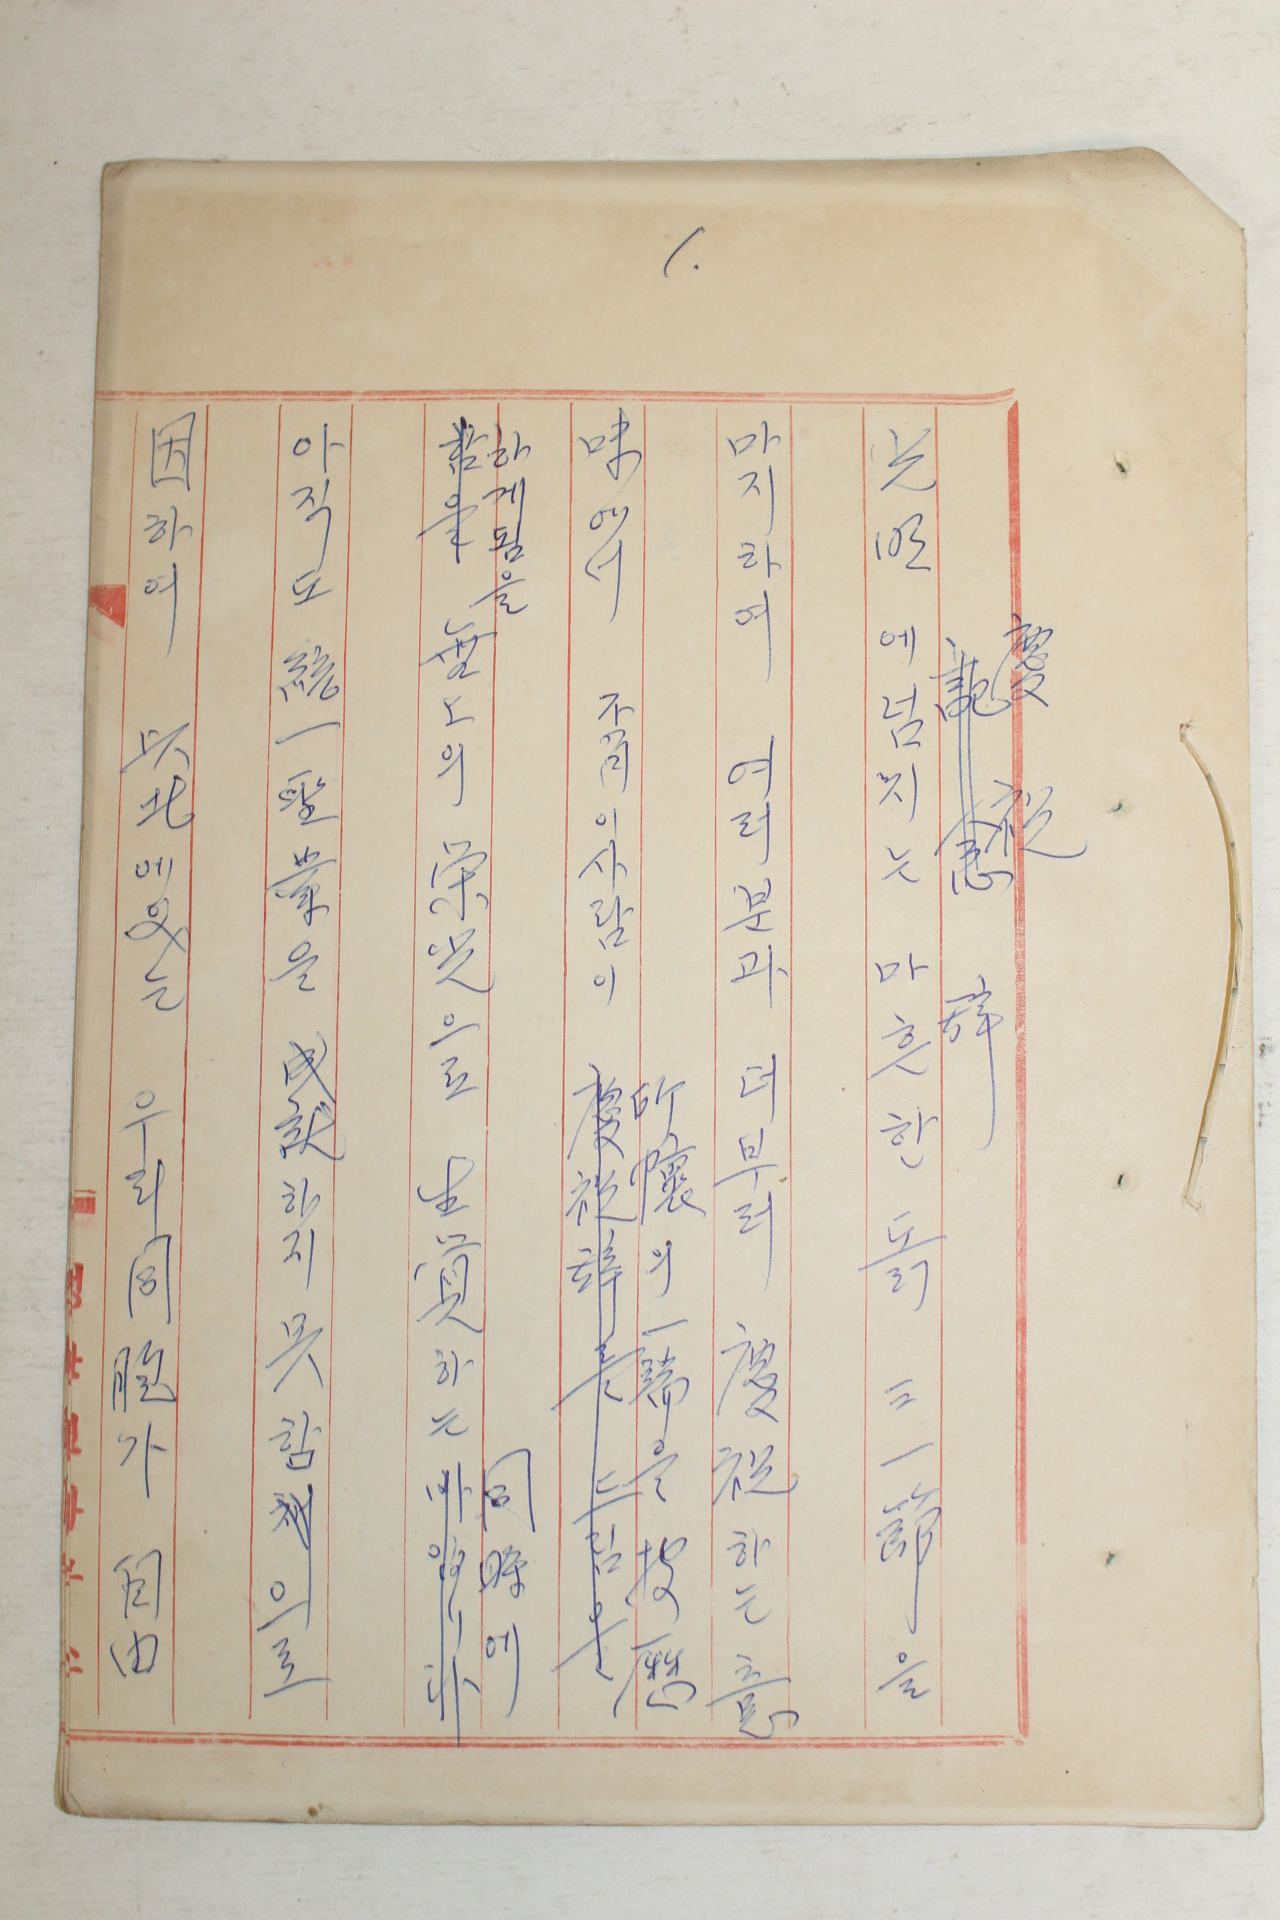 1.
慶祝
記念 辞
光明에넘치는 마흔한 돐 三一節을
마지하여 여러분과 더부러 慶祝하는 意
味에서 不肖 이사람이 慶祝辞를 드림은
所懐의 一端을 披歴
하게됨을
無上의 榮光으로 生覺하는 마음입니다
同時에
아직도 統一聖業을 成就하지 못함으로
因하여 以北에있는 우리 同胞가 自由